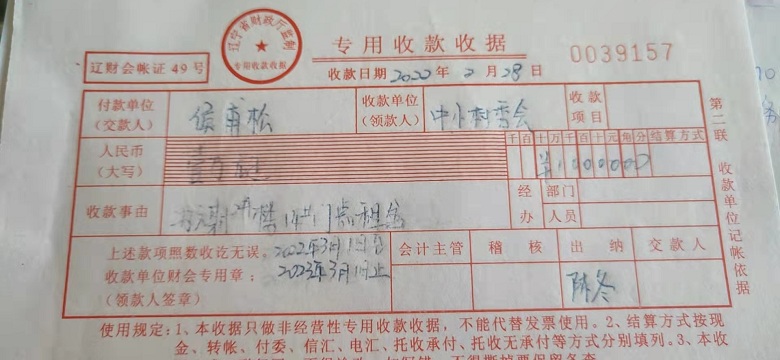 辽宁省财政厅监制
专用收款收据
专用收款收据
0039157
辽财会帐证 49 号
收款日期 2022 年 2 月 28 日
付款单位
(交款人)
侯甫松
收款单位
(领款人)
中小村委会
收款
项目
人民币
(大写)
千百十万千百十元角分
结算方式
收款事由
经办
部门
人员
上述款项照数收讫无误。
2022年3月1日
收款单位财会专用章:
2023年3月1日止
(领款人签章)
会计主管
稽 核
出 纳
交 款 人
陈冬
第二联 收款单位记帐依据
使用规定:1、本收据只做非经营性专用收款收据,不能代替发票使用。2、结算方式按现
金、转帐、付委、信汇、电汇、托收承付、托收无承付等方式分别填列。3、本收